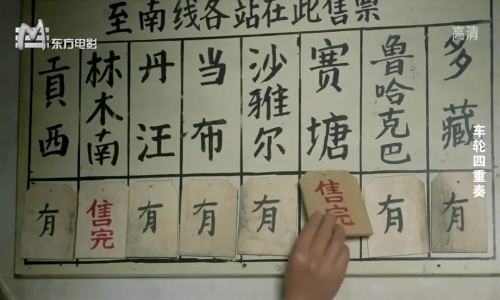 东方电影
高清
至南线各站在此售票
貢西
林木南
丹汪
当布
沙雅尔
赛塘
鲁哈克巴
多藏
有
售完
有
有
有
售完
有
车轮四重奏